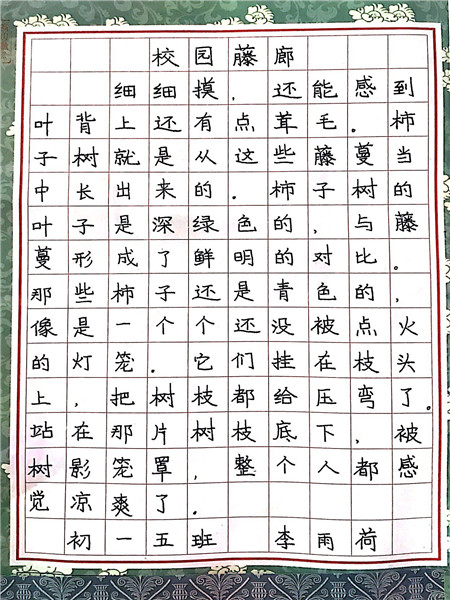 校园藤廊
细细摸，还能感到
叶背上还有点茸毛。柿
子树就是从这些藤蔓当
中长出来的。柿子树的
叶子是深绿色的，与藤
蔓形成了鲜明的对比。
那些柿子还是青色的，
像是一个个还没被点火
的灯笼。它们挂在枝头
上，把树枝都给压弯了。
站在那片树枝底下，被
树影笼罩，整个人都感
觉凉爽了。
初一五班 李雨荷